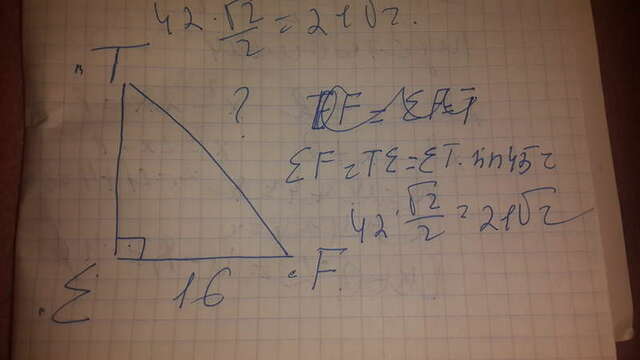 42 · √2/2 = 21√2.
T
?
ΣF = TΣ = ΣT · sin 45 =
42 · √2/2 = 21√2
Σ
16
F